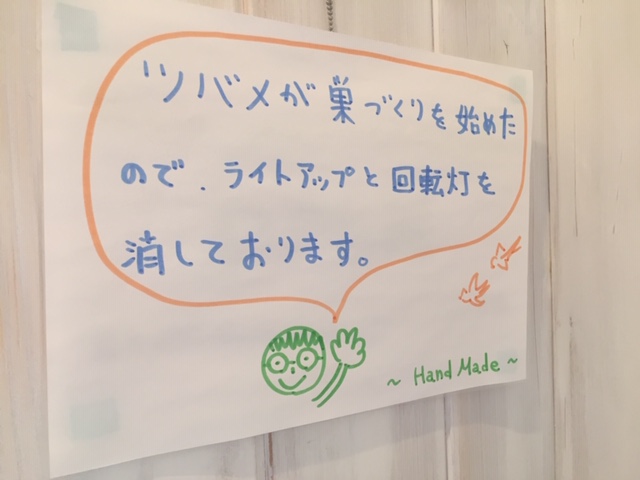 ツバメが巣づくりを始めた
ので、ライトアップと回転灯を
消しております。
~ Hand Made ~